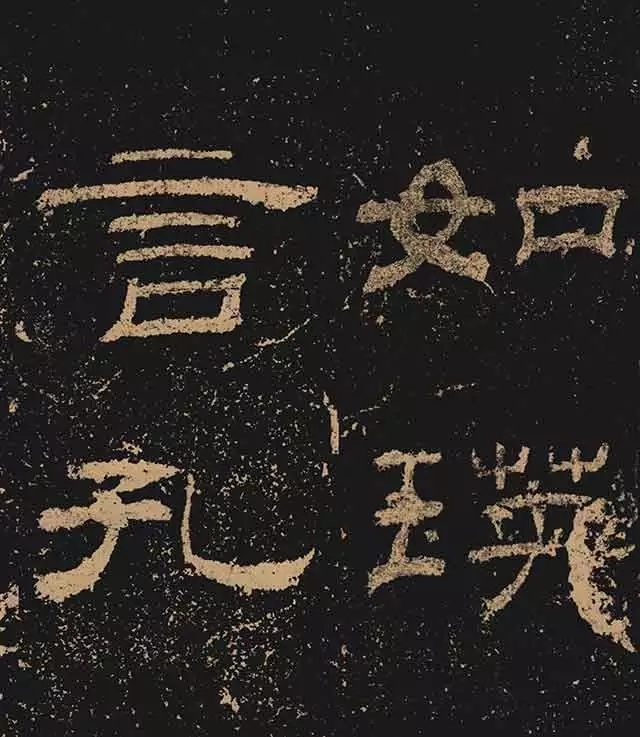 如瑛
言孔